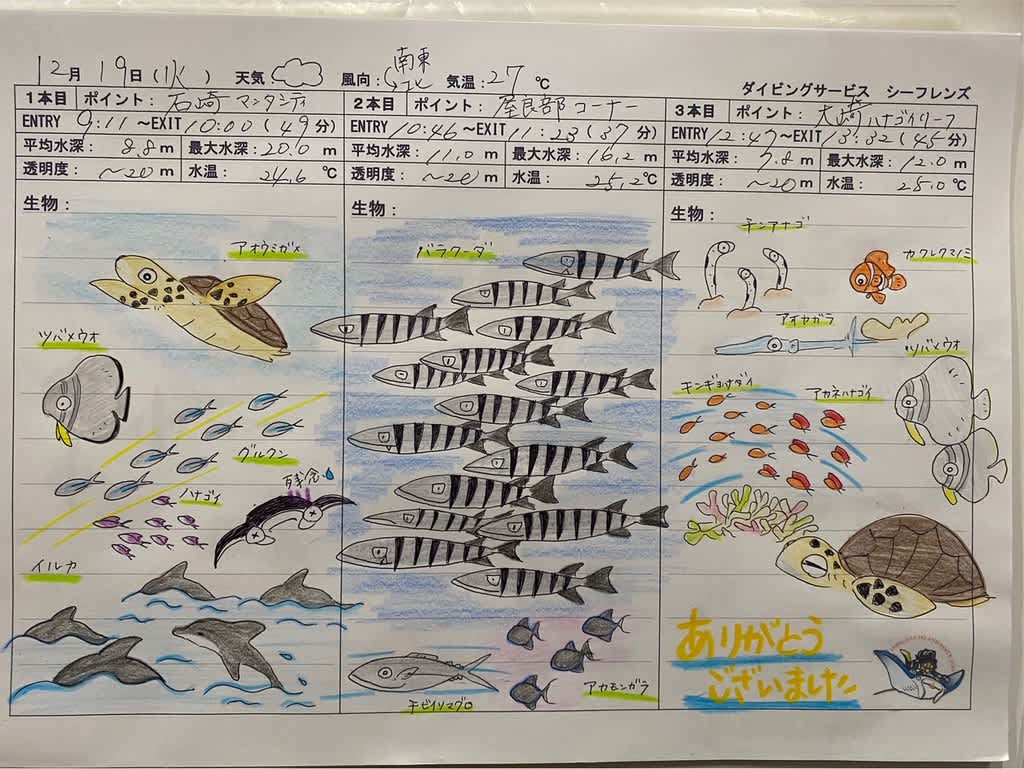 12月 19日(水) 天気 風向:南東→北 気温:27 ℃
ダイビングサービス シーフレンズ
1本目 ポイント: 石崎 マンタシティ
ENTRY 9:11 ~EXIT 10:00 (49分)
平均水深: 8.8 m 最大水深: 20.0 m
透明度: ~20 m 水温: 24.6 ℃
生物:
アオウミガメ
ツバメウオ
グルクン
残念
ハナゴイ
イルカ
2本目 ポイント: 屋良部コーナー
ENTRY 10:46 ~EXIT 11:23 (37分)
平均水深: 11.0 m 最大水深: 16.2 m
透明度: ~20 m 水温: 25.2℃
生物:
バラクーダ
チビイソマグロ
アカモンガラ
3本目 ポイント: 大崎ハナゴイリーフ
ENTRY 12:47 ~EXIT 13:32 (45分)
平均水深: 7.8 m 最大水深: 12.0 m
透明度: ~20 m 水温: 25.0℃
生物:
チンアナゴ
カクレクマノミ
アオヤガラ
ツバメウオ
キンギョハナダイ
アカネハナゴイ
ありがとう
ございました!!